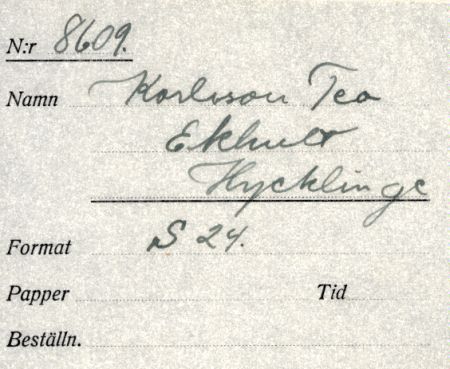 N:r 8609.
Namn Karlsson Tea
Ekhult
Hycklinge
Format S 24.
Papper Tid
Beställn.